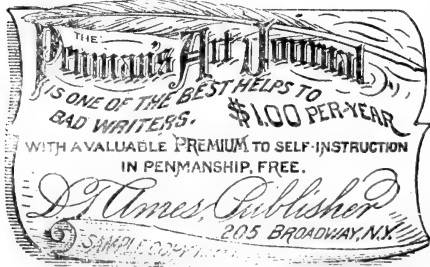 THE
Penman's Art Journal
IS ONE OF THE BEST HELPS TO
BAD WRITERS. $1.00 PER-YEAR
WITH A VALUABLE PREMIUM TO SELF-INSTRUCTION
IN PENMANSHIP, FREE.
D. T. Ames, Publisher
205 BROADWAY, N.Y.
SAMPLE COPY